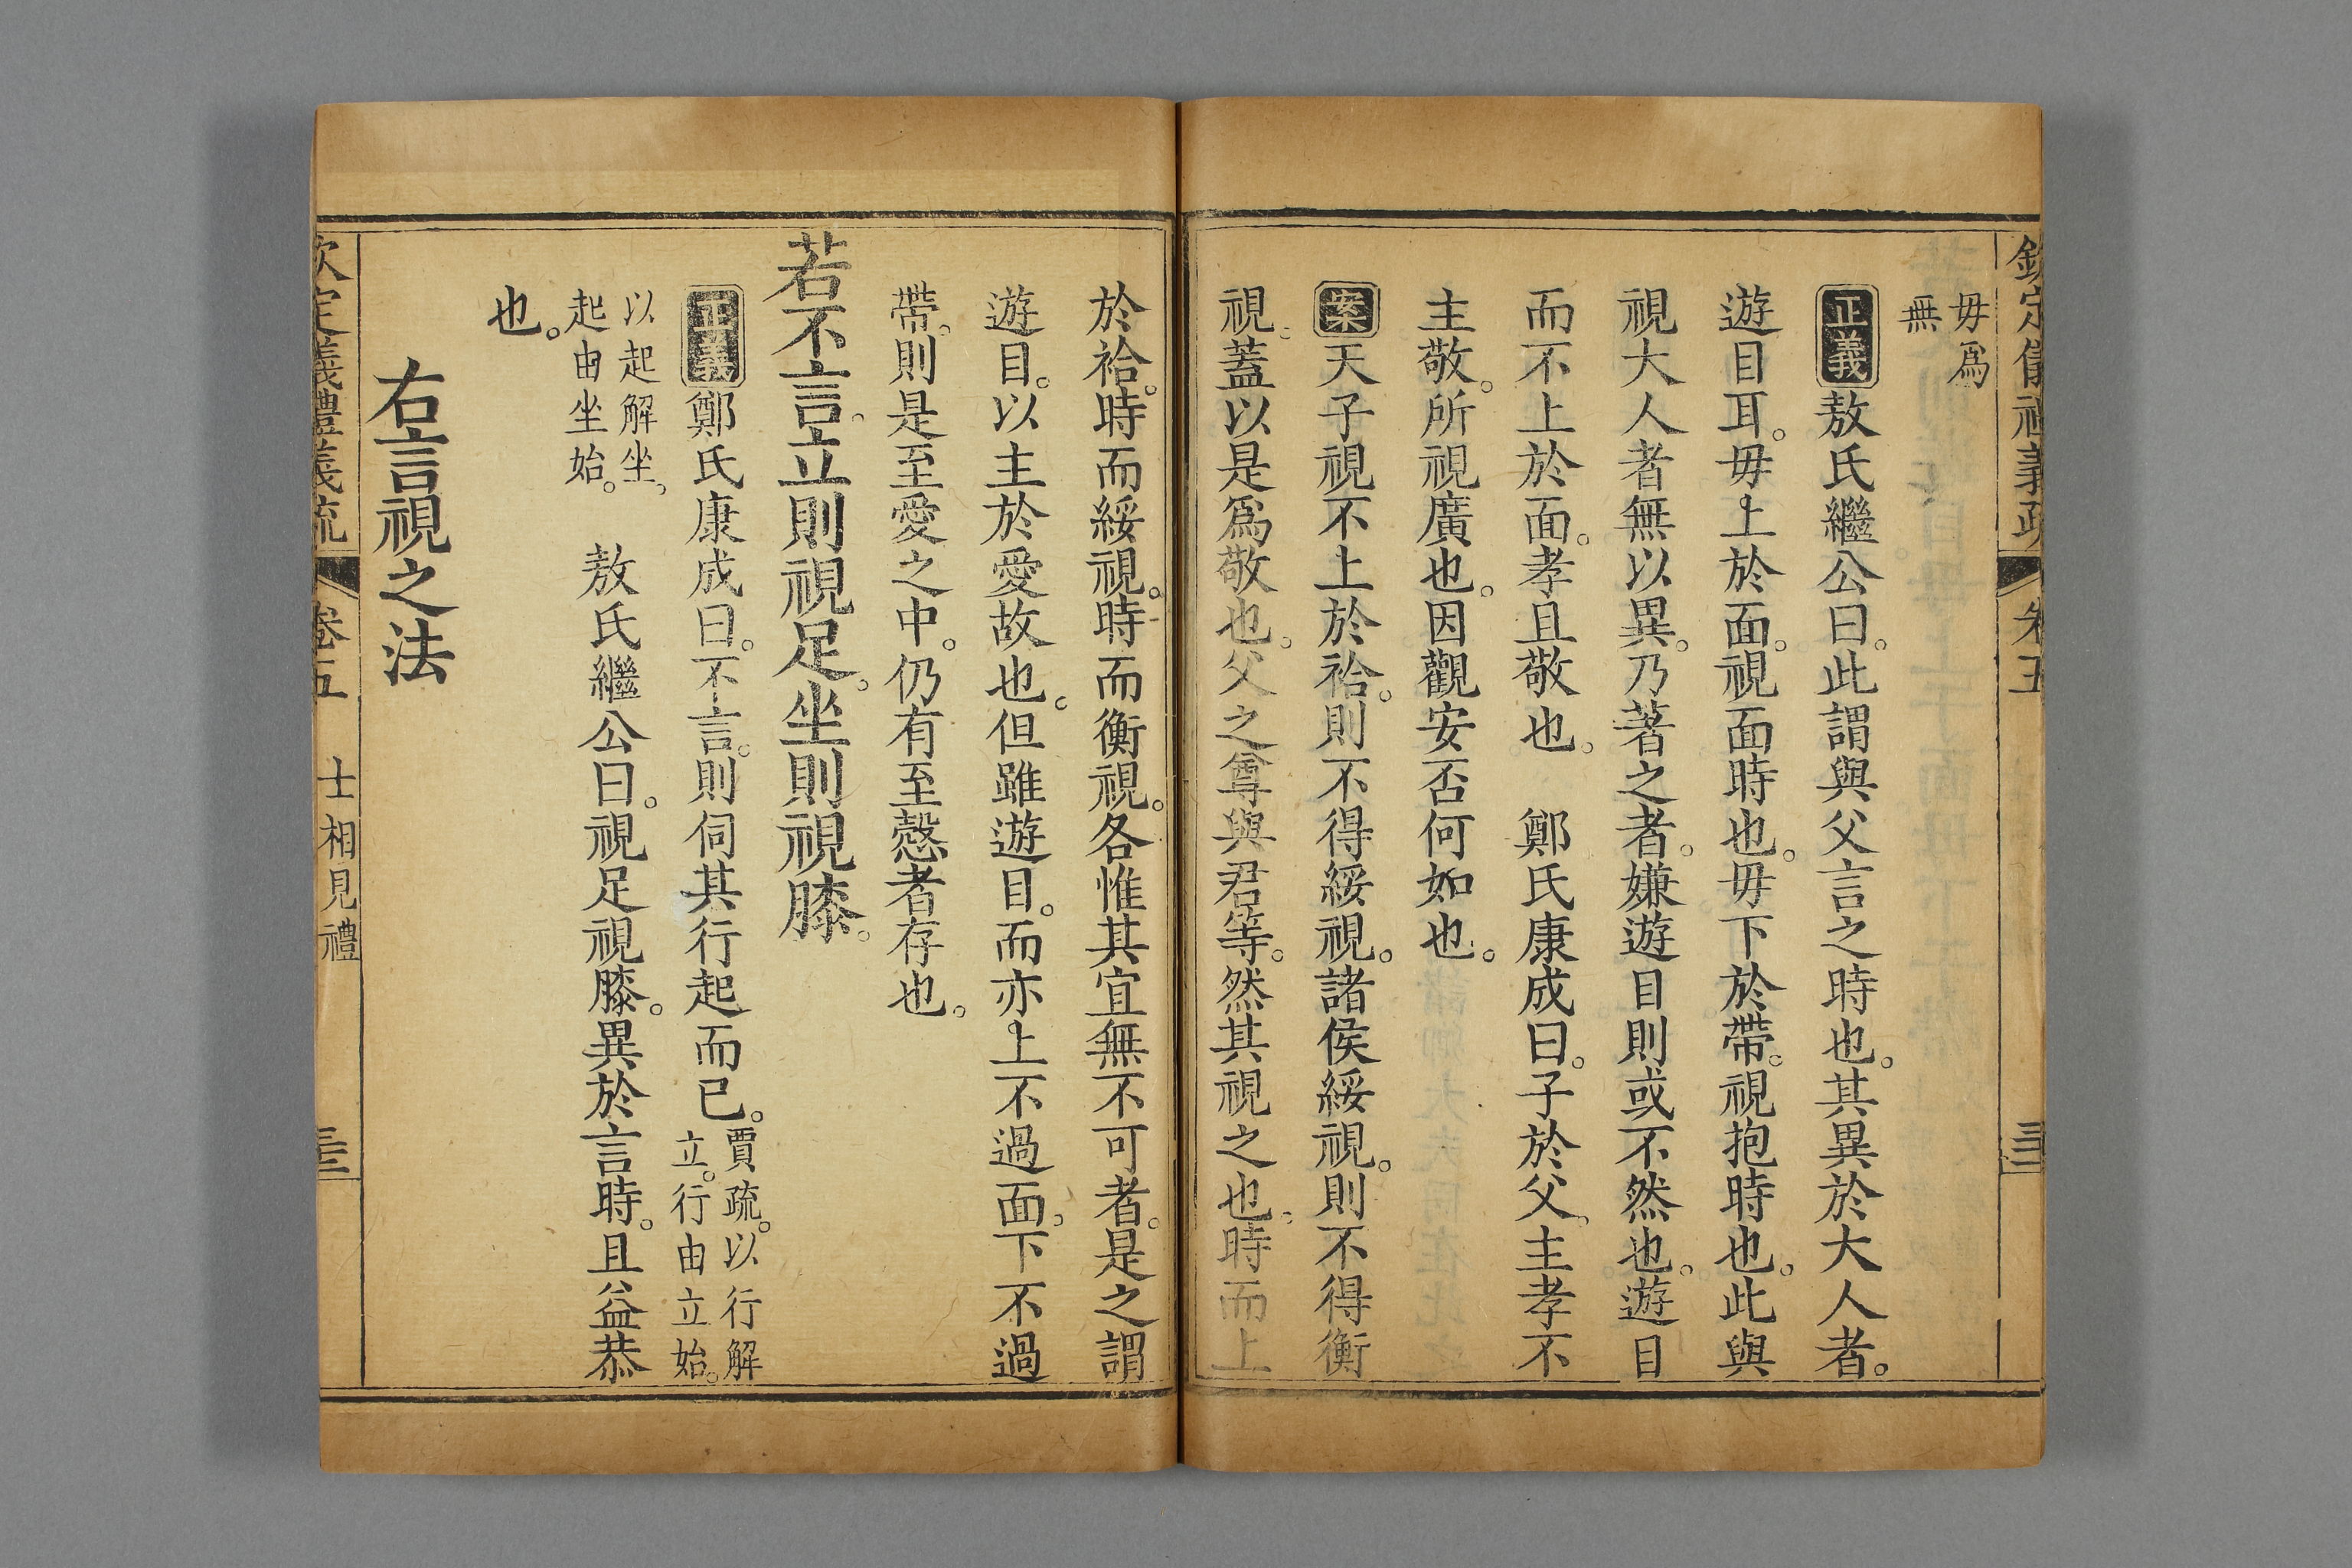 欽定儀禮義疏 卷五
毋爲
無
正義敖氏繼公曰。此謂與父言之時也。其異於大人者。
遊目耳。毋上於面。視面時也。毋下於帶。視抱時也。此與
視大人者無以異。乃著之者。嫌遊目則或不然也。遊目
而不上於面。孝且敬也。 鄭氏康成曰。子於父。主孝不
主敬。所視廣也。因觀安否何如也。
案天子視不上於袷。則不得綏視。諸侯綏視。則不得衡
視。蓋以是爲敬也。父之尊與君等。然其視之也。時而上
於袷。時而綏視。時而衡視。各惟其宜無不可者。是之謂
遊目。以主於愛故也。但雖遊目。而亦上不過面。下不過
帶。則是至愛之中。仍有至慤者存也。
若不言。立則視足。坐則視膝。
正義鄭氏康成曰。不言。則伺其行起而已。
賈疏。以行解
立。行由立始。
以起解坐。
起由坐始。
敖氏繼公曰。視足視膝。異於言時。且益恭
也。
右言視之法
欽定儀禮義疏 卷五 士相見禮